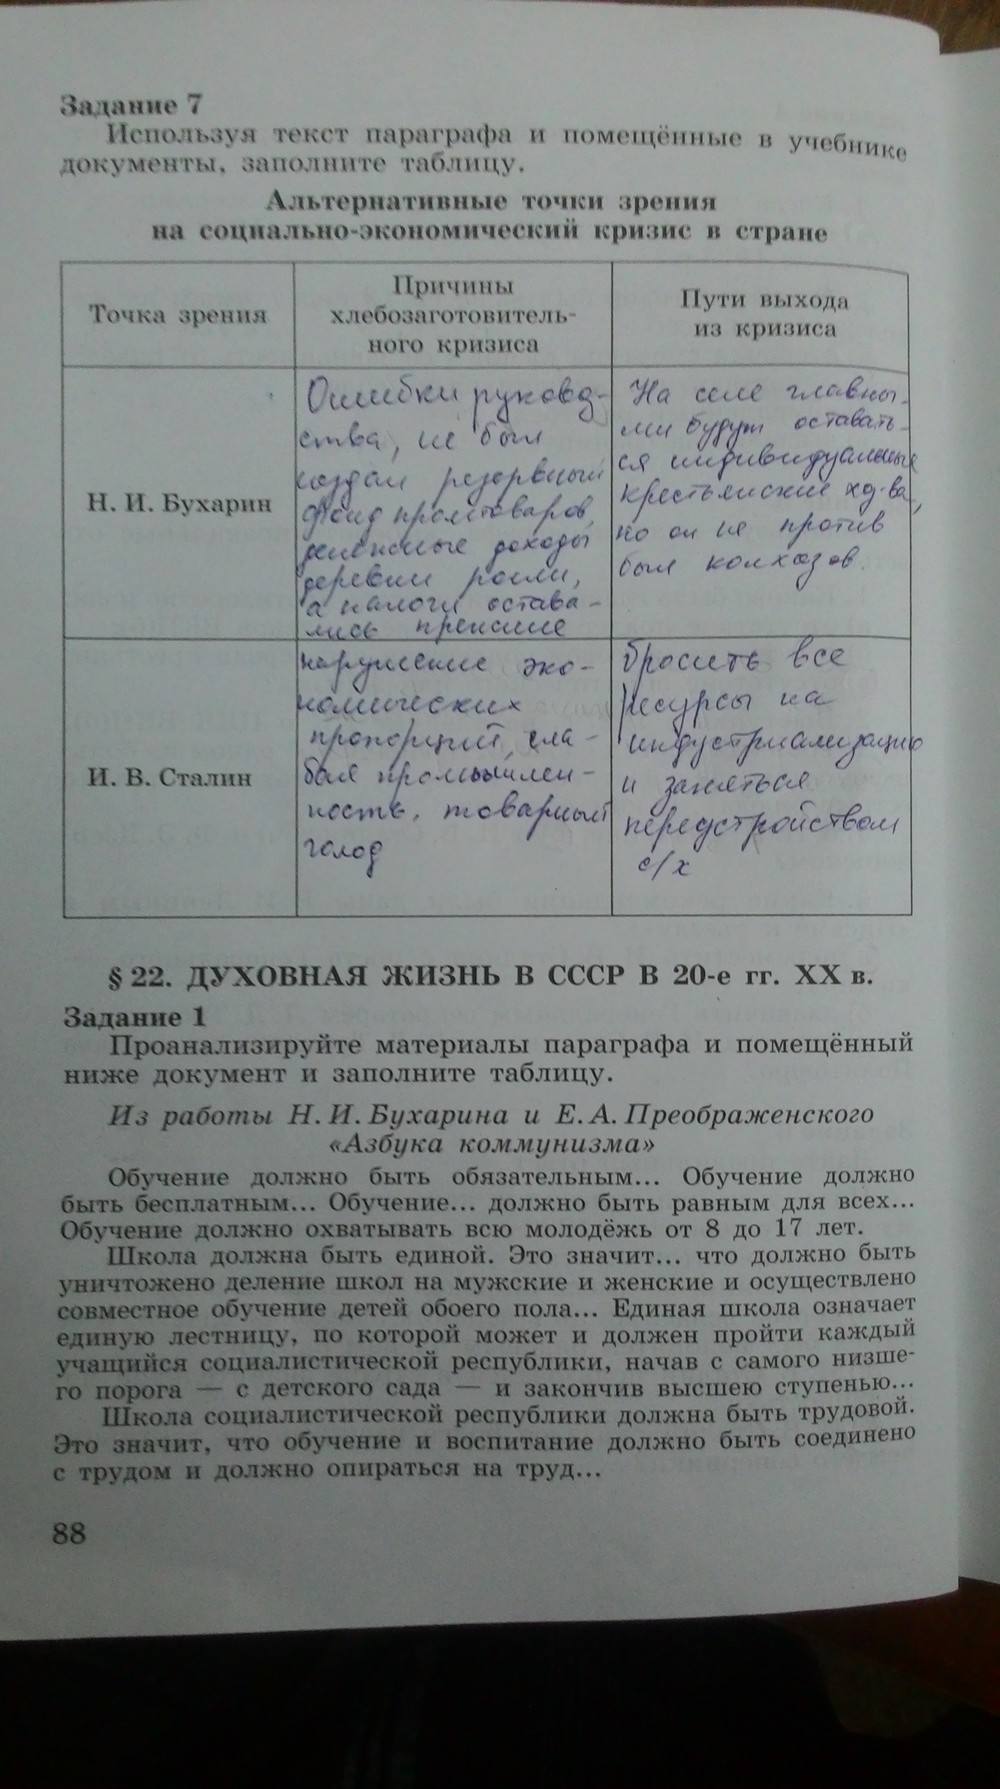 Задание 7
Используя текст параграфа и помещённые в учебнике
документы, заполните таблицу.
Альтернативные точки зрения
на социально-экономический кризис в стране
Точка зрения
Причины
хлебозаготовитель-
ного кризиса
Пути выхода
из кризиса
Н. И. Бухарин
Ошибки руковод-
ства, не был
создан резервный
фонд промтоваров,
денежные доходы
деревни росли,
а налоги остава-
лись прежние
На селе главны-
ми будут оставать-
ся индивидуальные
крестьянские хоз-ва,
но он не против
был колхозов.
И. В. Сталин
нарушение эко-
номических
пропорций, сла-
бая промышлен-
ность, товарный
голод
бросить все
ресурсы на
индустриализацию
и заняться
переустройством
с/х
§ 22. ДУХОВНАЯ ЖИЗНЬ В СССР В 20-е гг. XX в.
Задание 1
Проанализируйте материалы параграфа и помещённый
ниже документ и заполните таблицу.
Из работы Н. И. Бухарина и Е. А. Преображенского
«Азбука коммунизма»
Обучение должно быть обязательным... Обучение должно
быть бесплатным... Обучение... должно быть равным для всех...
Обучение должно охватывать всю молодёжь от 8 до 17 лет.
Школа должна быть единой. Это значит... что должно быть
уничтожено деление школ на мужские и женские и осуществлено
совместное обучение детей обоего пола... Единая школа означает
единую лестницу, по которой может и должен пройти каждый
учащийся социалистической республики, начав с самого низше-
го порога — с детского сада — и закончив высшею ступенью...
Школа социалистической республики должна быть трудовой.
Это значит, что обучение и воспитание должно быть соединено
с трудом и должно опираться на труд...
88